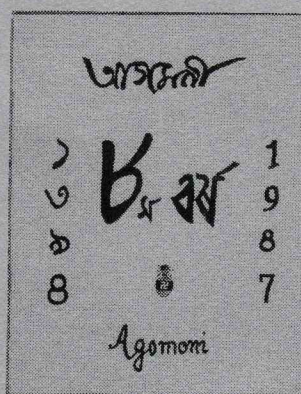 আগমনী
১৩৯৪
৮ম বর্ষ
1987
Agomoni